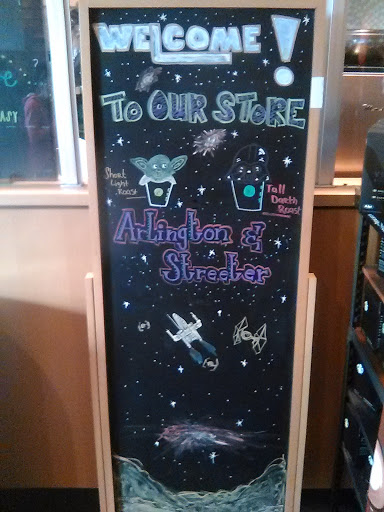 WELCOME!
TO OUR STORE
Short
Light
Roast
Tall
Darth
Roast
Arlington &
Streeter